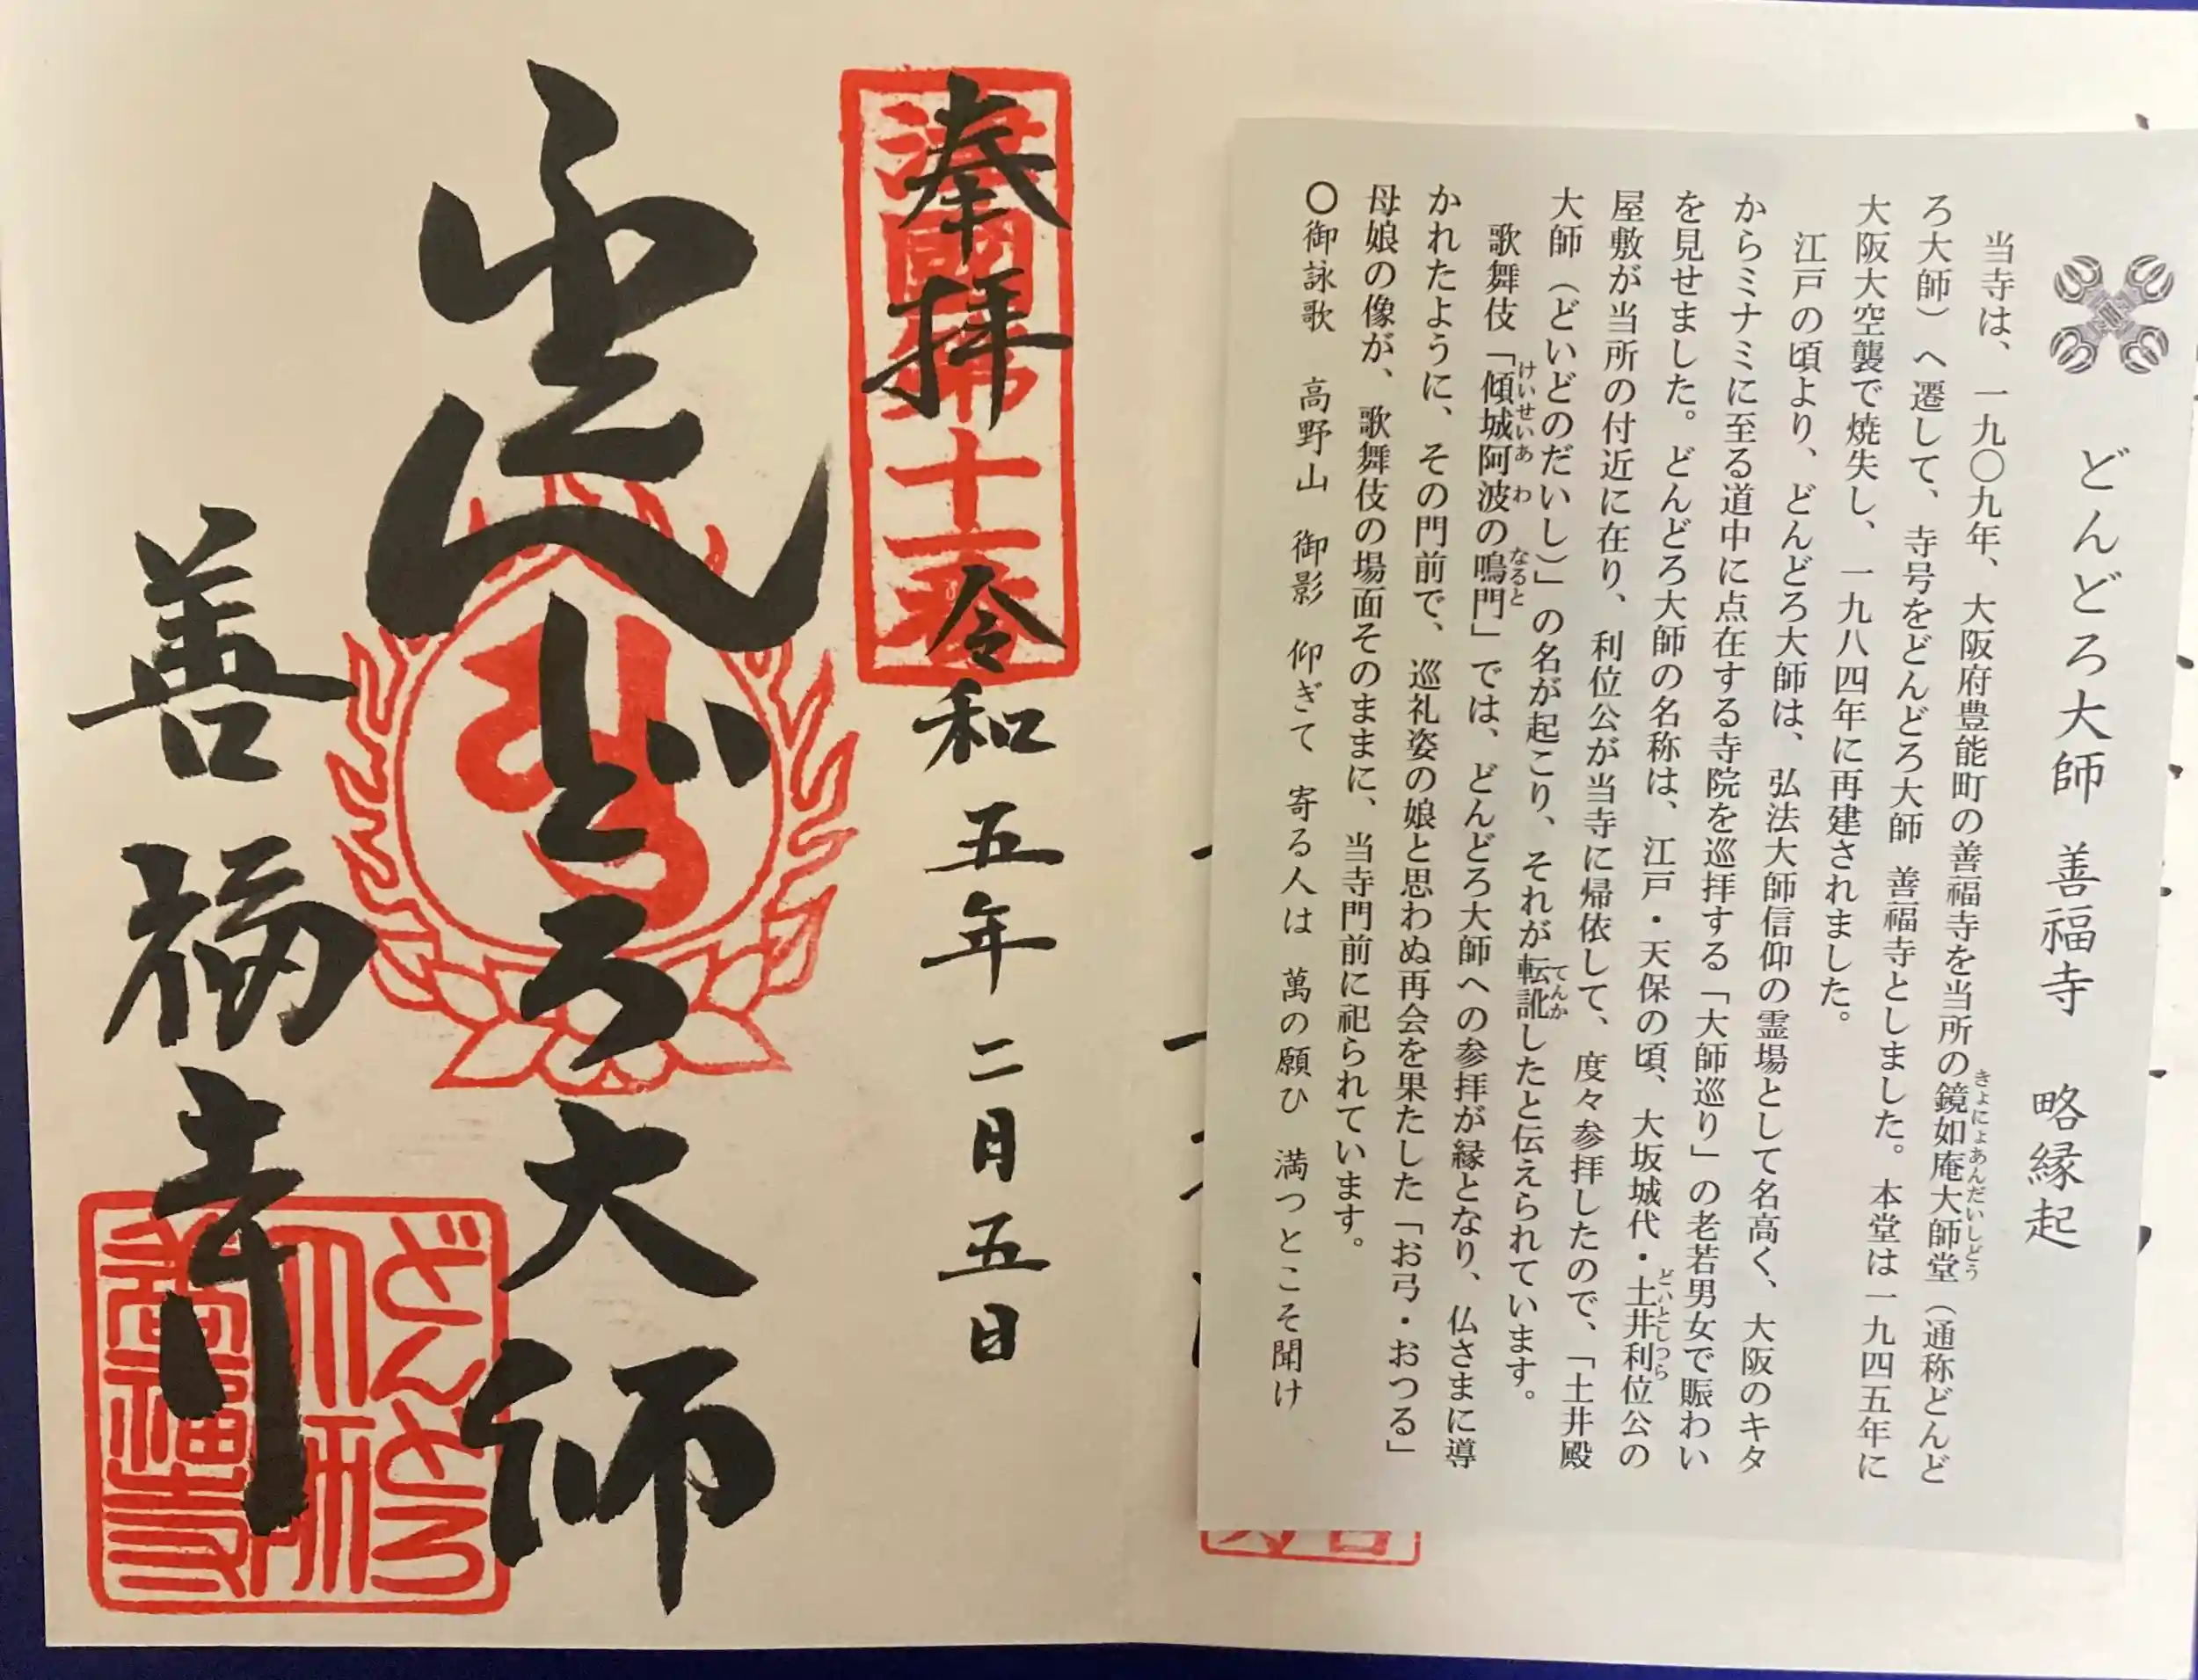 どんどろ大師 善福寺 略縁起
当寺は、一九〇九年、大阪府豊能町の善福寺を当所の鏡如庵大師堂（通称どんど
きょにょあんだいしどう
ろ大師）へ遷して、寺号をどんどろ大師 善福寺としました。本堂は一九四五年に
大阪大空襲で焼失し、一九八四年に再建されました。
江戸の頃より、どんどろ大師は、弘法大師信仰の霊場として名高く、大阪のキタ
からミナミに至る道中に点在する寺院を巡拝する「大師巡り」の老若男女で賑わい
を見せました。どんどろ大師の名称は、江戸・天保の頃、大坂城代・土井利位公の
どいとしつら
屋敷が当所の付近に在り、利位公が当寺に帰依して、度々参拝したので、「土井殿
大師（どいどのだいし）」の名が起こり、それが転訛したと伝えられています。
てんか
歌舞伎「傾城阿波の鳴門」では、どんどろ大師への参拝が縁となり、仏さまに導
けいせいあわ なると
かれたように、その門前で、巡礼姿の娘と思わぬ再会を果たした「お弓・おつる」
母娘の像が、歌舞伎の場面そのままに、当寺門前に祀られています。
〇御詠歌 高野山 御影 仰ぎて 寄る人は 萬の願ひ 満つとこそ聞け
奉拝
令和五年二月五日
どろ大師
善福寺